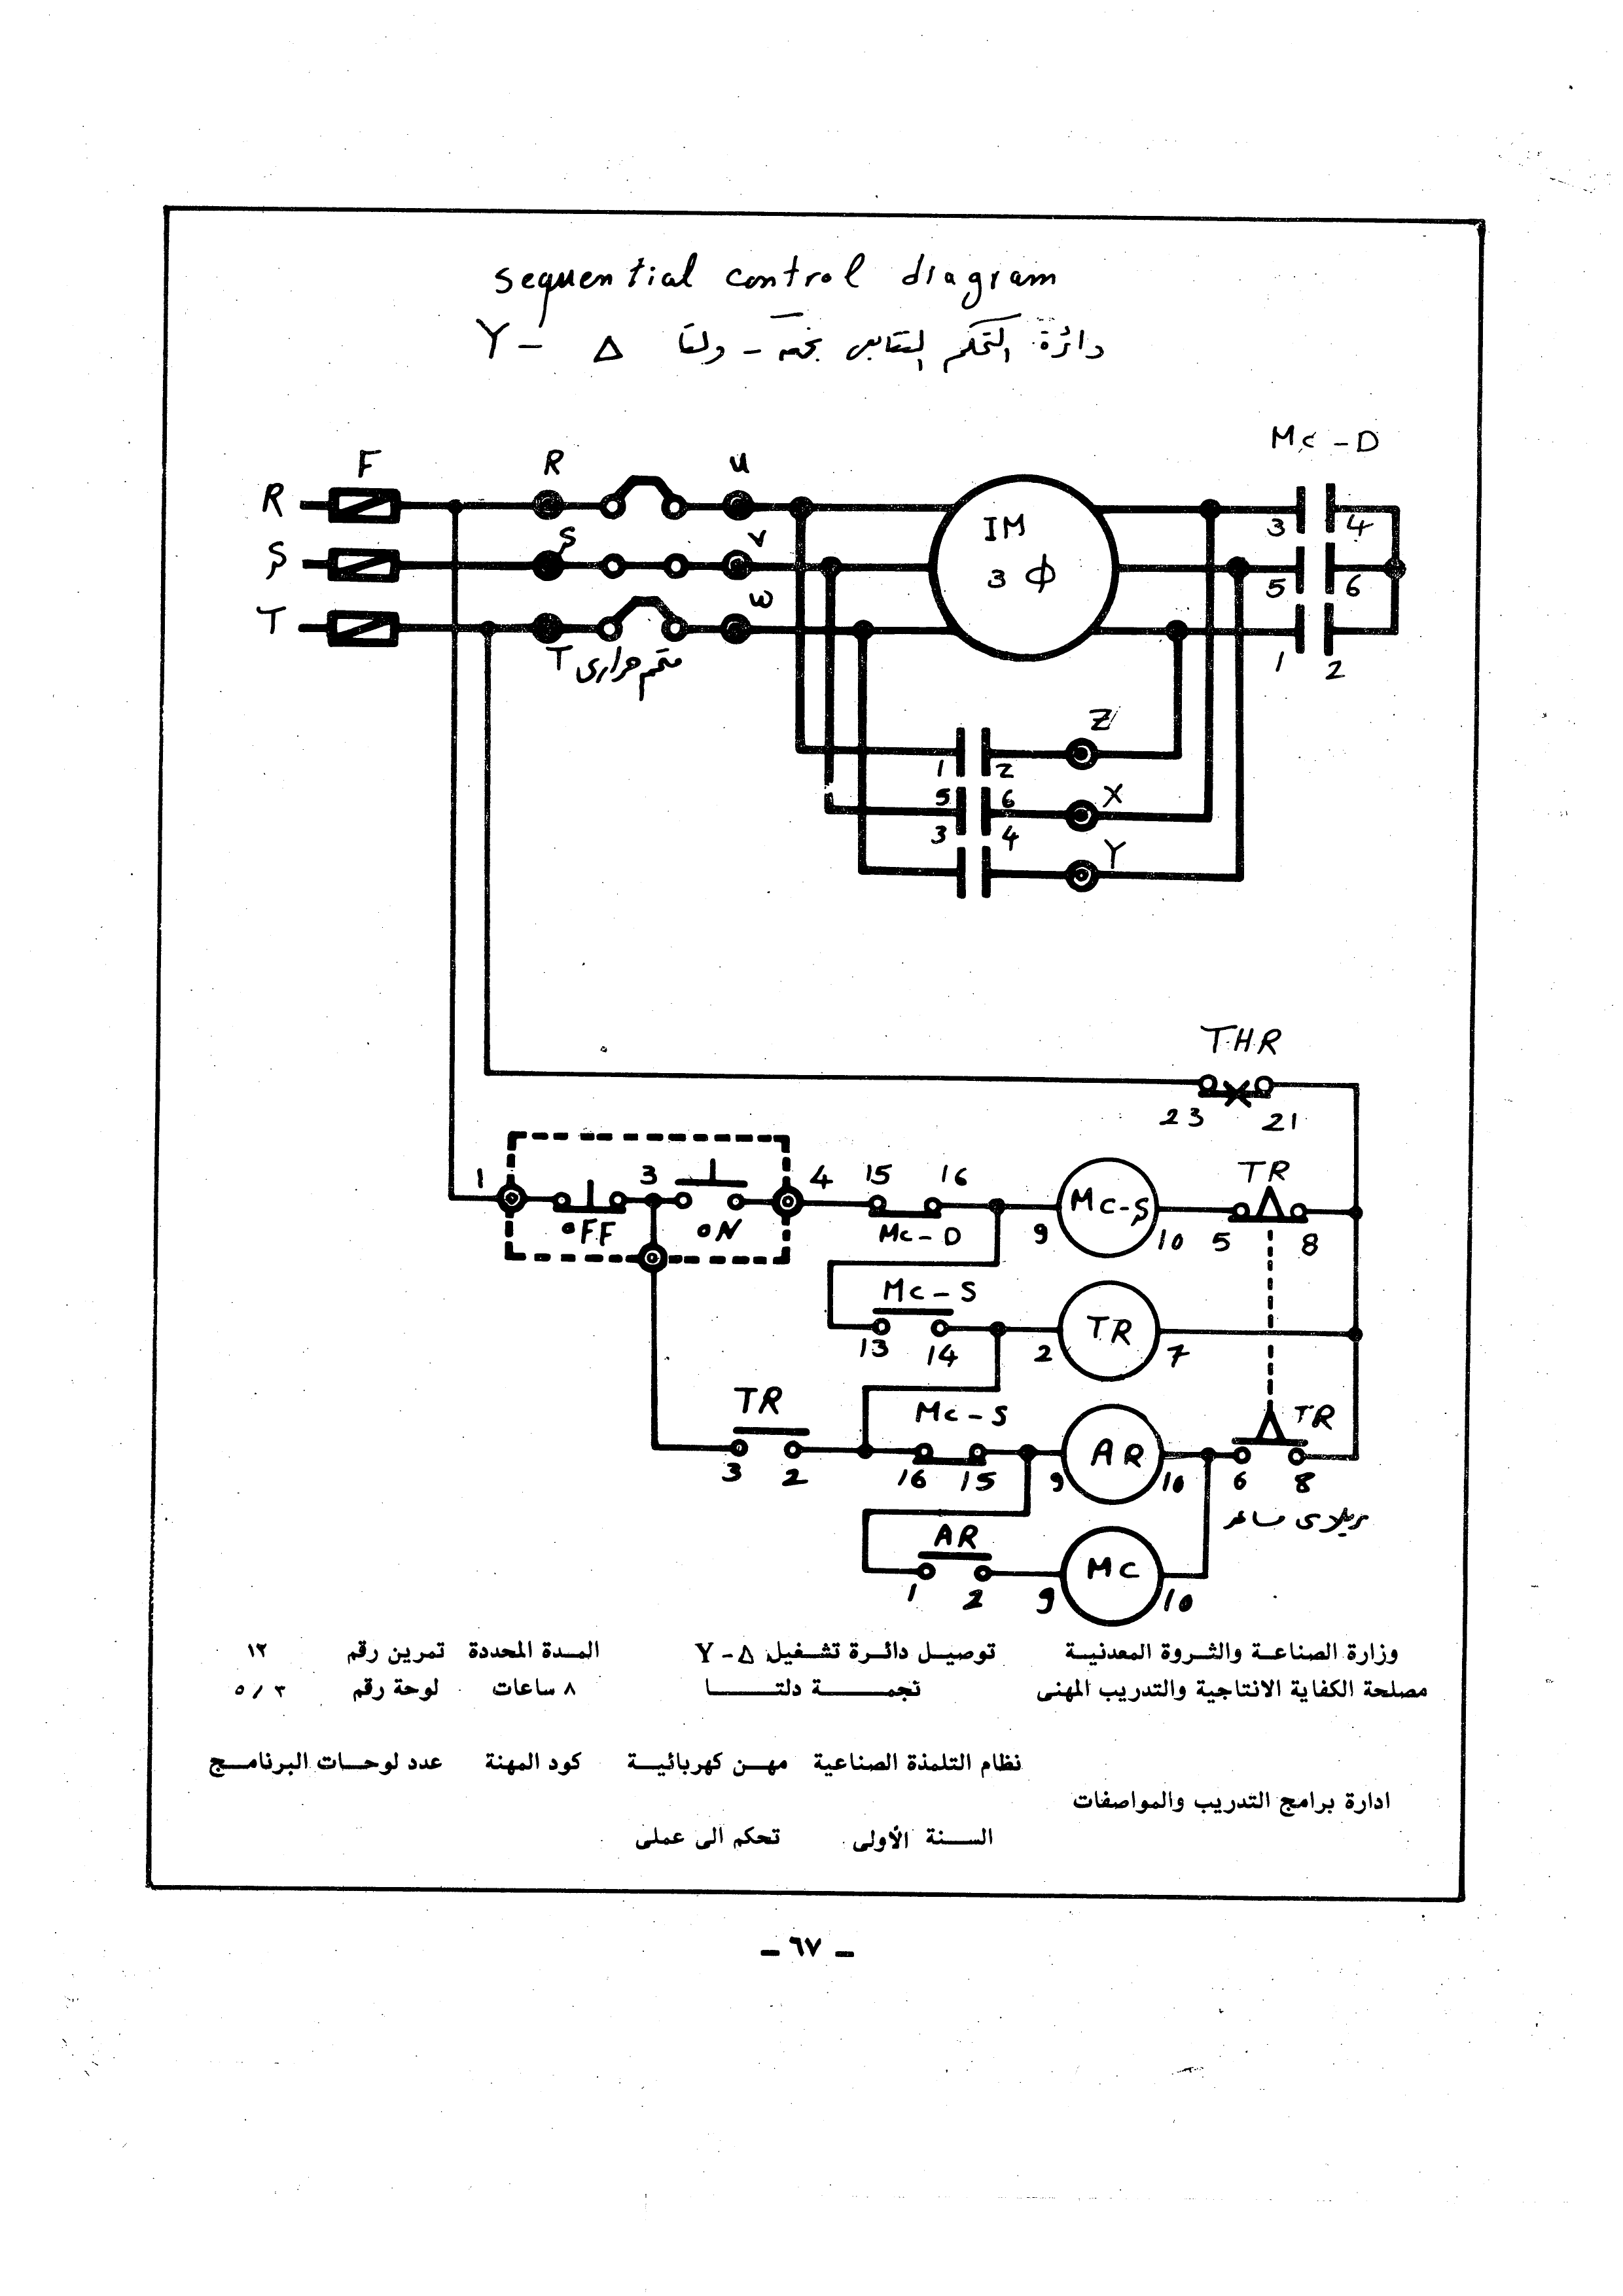 sequential control diagram
دائرة التحكم التتابعى نجمة - دلتا Y - Δ
Mc - D
F R U
R 3 4
S S V IM 3 Φ 5 6
T T W
متمم حرارى 1 2
Z
1 2
5 6 X
3 4
Y
THR
23 21
1 3 4 15 16 TR
OFF ON Mc - D 9 Mc-S 10 5 8
Mc - S
13 14 2 TR 7
TR Mc - S TR
3 2 16 15 9 AR 10 6 8
AR
1 2 9 MC 10
وزارة الصناعة والثروة المعدنية توصيل دائرة تشغيل Y - Δ المدة المحددة تمرين رقم ١٢
مصلحة الكفاية الانتاجية والتدريب المهنى نجمة دلتا ٨ ساعات لوحة رقم ٥ / ٣
نظام التلمذة الصناعية مهن كهربائية كود المهنة عدد لوحات البرنامج
ادارة برامج التدريب والمواصفات
السنة الأولى تحكم الى عملى
- ٦٧ -